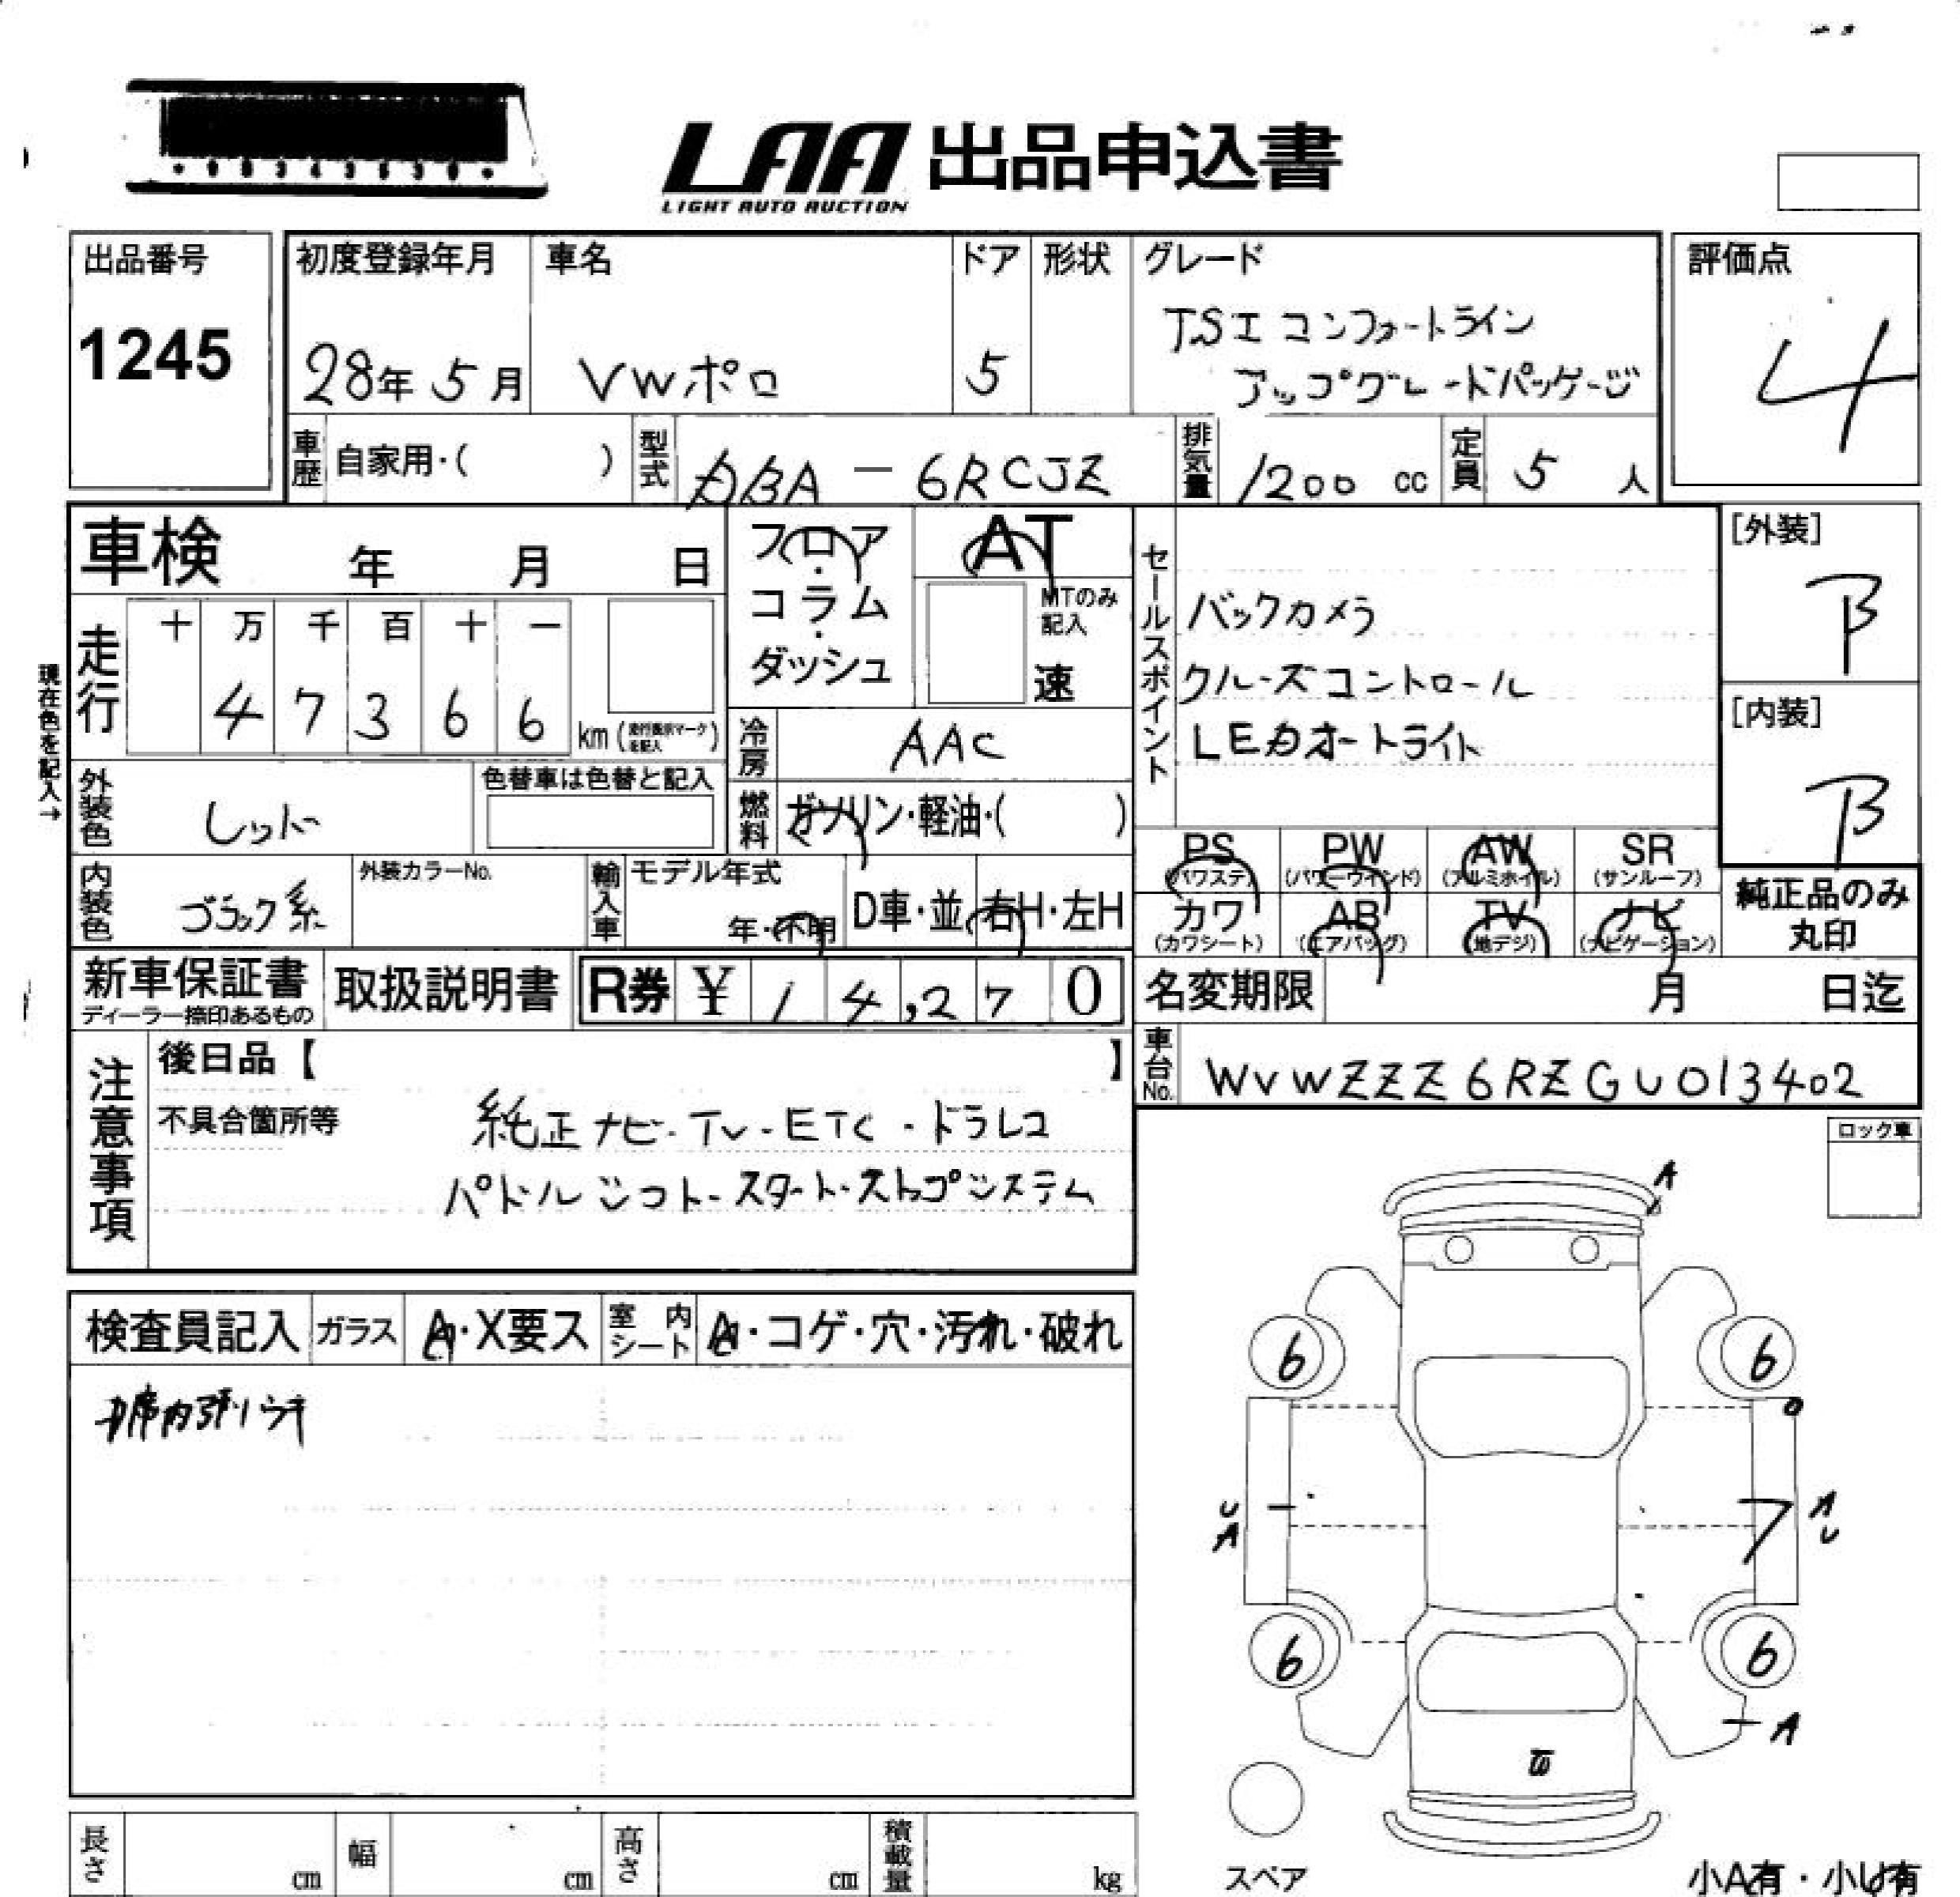 LAA 出品申込書
LIGHT AUTO AUCTION
出品番号
1245
初度登録年月
28年 5月
車名
VWポロ
ドア
5
形状
グレード
TSI コンフォートライン
アップグレードパッケージ
評価点
4
車歴 自家用・( )
型式 DBA-6RCJZ
排気量 1200 cc
定員 5 人
車検 年 月 日
フロア・コラム・ダッシュ
AT
MTのみ記入
速
現在色を記入→
走行
十 万 千 百 十 一
4 7 3 6 6 km
冷房 AAC
セールスポイント
バックカメラ
クルーズコントロール
LEDオートライト
[外装]
B
[内装]
B
外装色 レッド
色替車は色替と記入
燃料 ガソリン・軽油・( )
内装色 ブラック系
外装カラーNo.
輸入車 モデル年式
年・不明
D車・並
右H・左H
PS (パワステ)
PW (パワーウインド)
AW (アルミホイル)
SR (サンルーフ)
カワ (カワシート)
AB (エアバッグ)
TV (地デジ)
ナビ (ナビゲーション)
純正品のみ
丸印
新車保証書
ディーラー捺印あるもの
取扱説明書
R券 ¥ 1 4,2 7 0
名変期限 月 日迄
車台No. WVWZZZ6RZGU013402
注意事項
後日品【 】
不具合箇所等
純正ナビ・TV・ETC・ドラレコ
パドルシフト・スタート・ストップシステム
ロック車
検査員記入
ガラス A・X要ス
室内シート A・コゲ・穴・汚れ・破れ
A
6 6
U
A
A
U
6 6
A
スペア
長さ cm
幅 cm
高さ cm
積載量 kg
小A有・小U有